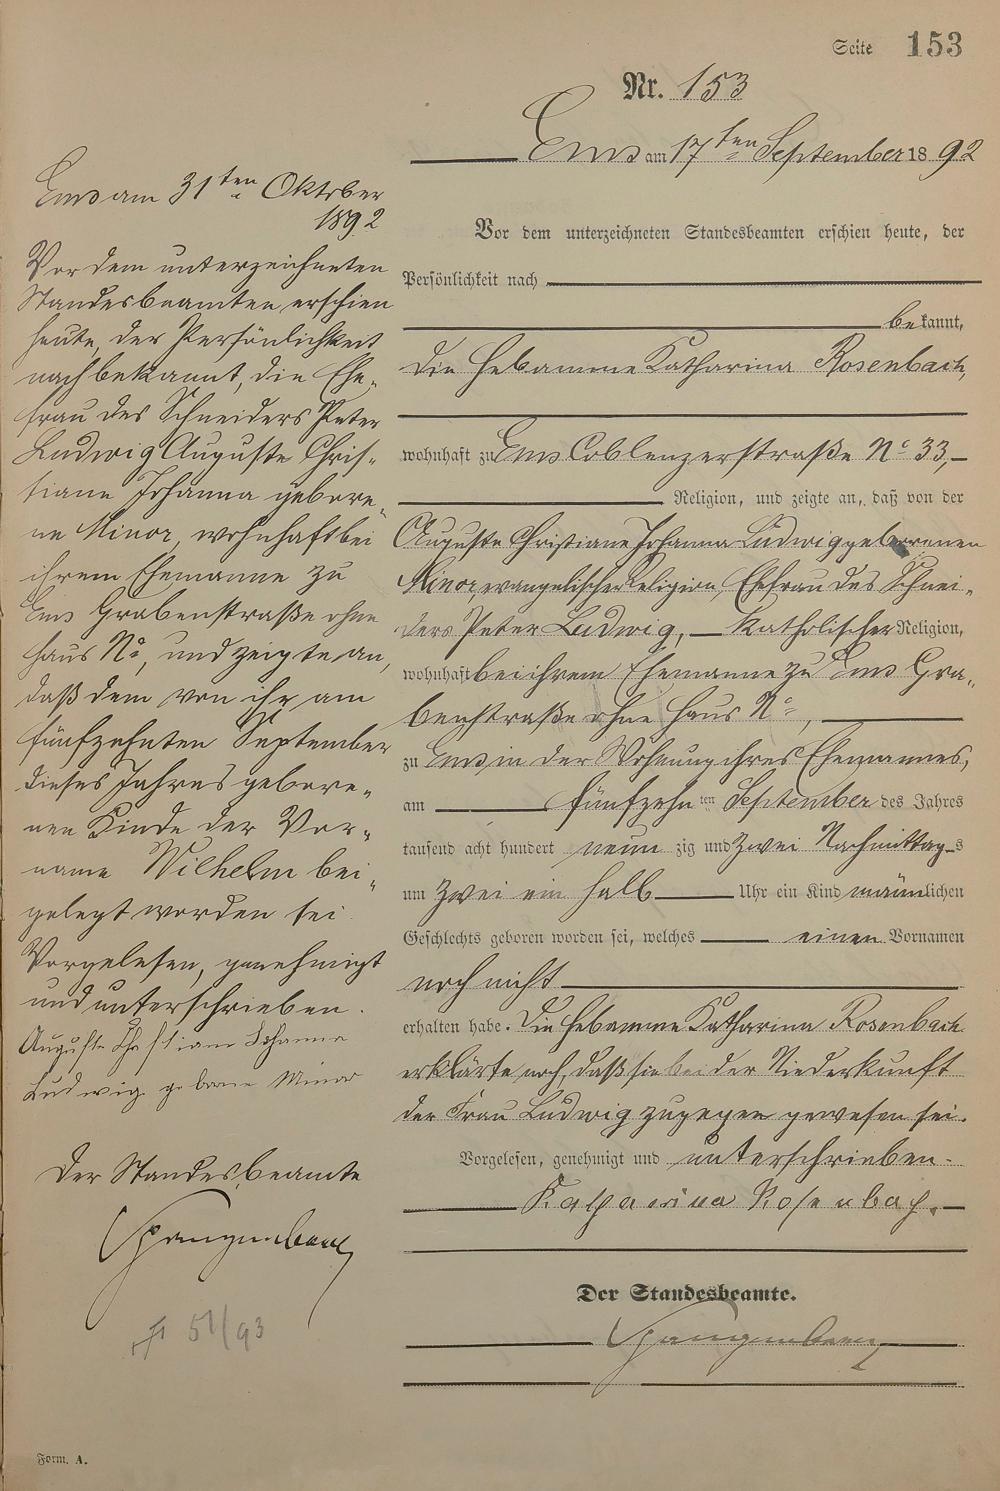 Seite 153
Nr. 153
Ems am 17ten September 1892
Vor dem unterzeichneten Standesbeamten erschien heute, der
Persönlichkeit nach
bekannt,
die Hebamme Katharina Rosenbach,
wohnhaft zu Ems Coblenzerstraße No 33,
Religion, und zeigte an, daß von der
Auguste Christiane Johanna Ludwig geborenen
Minor evangelischer Religion, Ehefrau des Schnei-
ders Peter Ludwig, katholischer Religion,
wohnhaft bei ihrem Ehemanne zu Ems Gra-
benstraße ohne Haus No,
zu Ems in der Wohnung ihres Ehemannes,
am fünfzehnten September des Jahres
tausend acht hundert neunzig und zwei Nachmittags
um zwei ein halb Uhr ein Kind männlichen
Geschlechts geboren worden sei, welches einen Vornamen
noch nicht
erhalten habe. Die Hebamme Katharina Rosenbach
erklärte noch, daß sie bei der Niederkunft
der Frau Ludwig zugegen gewesen sei.
Vorgelesen, genehmigt und unterschrieben.
Katharina Rosenbach.
Der Standesbeamte.
Spangenberg
Ems am 31ten Oktober
1892
Vor dem unterzeichneten
Standesbeamten erschien
heute, der Persönlichkeit
nach bekannt, die Ehe-
frau des Schneiders Peter
Ludwig Auguste Chris-
tiane Johanna gebore-
ne Minor, wohnhaft bei
ihrem Ehemanne zu
Ems Grabenstraße ohne
Haus No, und zeigte an,
daß dem von ihr am
fünfzehnten September
dieses Jahres gebore-
nen Kinde der Vor-
name Wilhelm bei-
gelegt worden sei.
Vorgelesen, genehmigt
und unterschrieben.
Auguste Christiane Johanna
Ludwig geborne Minor
Der Standesbeamte
Spangenberg
51/93
Form. A.